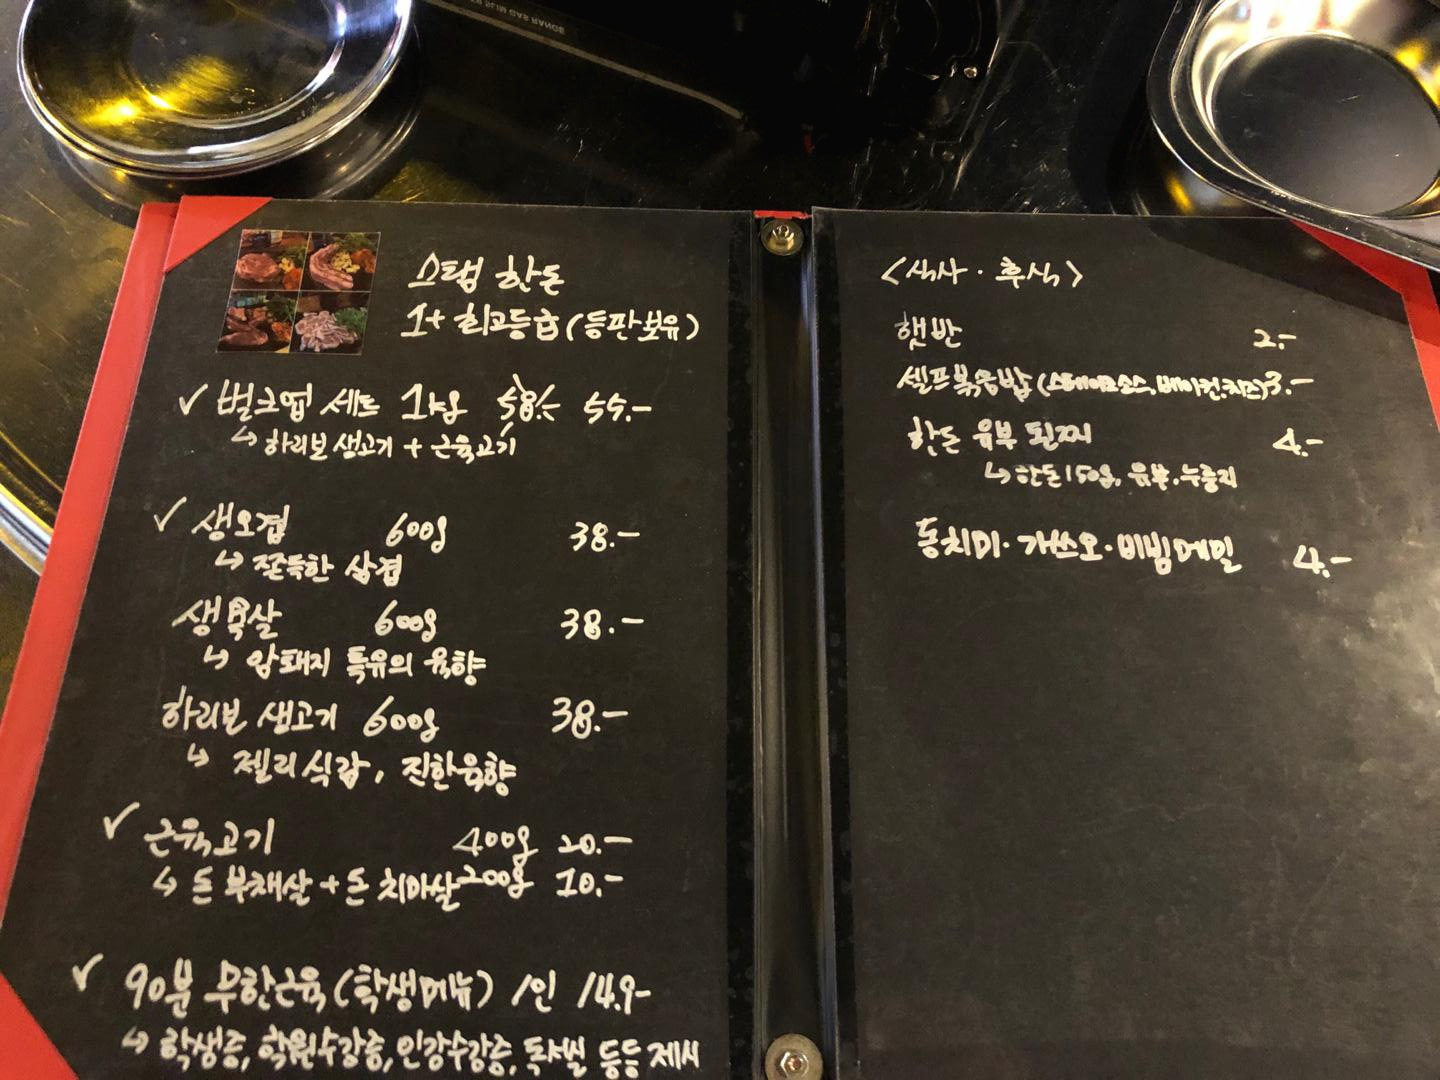 스탭 한돈
1+ 최고등급 (등판보유)
✓ 벌크업 세트 1kg 58.- 55.-
↳ 하리보 생고기 + 근육고기
✓ 생오겹 600g 38.-
↳ 쫀득한 삼겹
생목살 600g 38.-
↳ 암퇘지 특유의 육향
하리보 생고기 600g 38.-
↳ 젤리 식감, 진한육향
✓ 근육고기 400g 20.-
↳ 돈 부채살 + 돈 치마살 200g 10.-
✓ 90분 무한근육 (학생메뉴) 1인 14.9-
↳ 학생증, 학원수강증, 인강수강증, 독서실 등등 제시
<식사 · 후식>
햇반 2.-
셀프볶음밥 (스테이크소스, 베이컨, 치즈) 3.-
한돈 유부 된찌 4.-
↳ 한돈 150g, 유부, 누룽지
동치미 · 가쓰오 · 비빔메밀 4.-